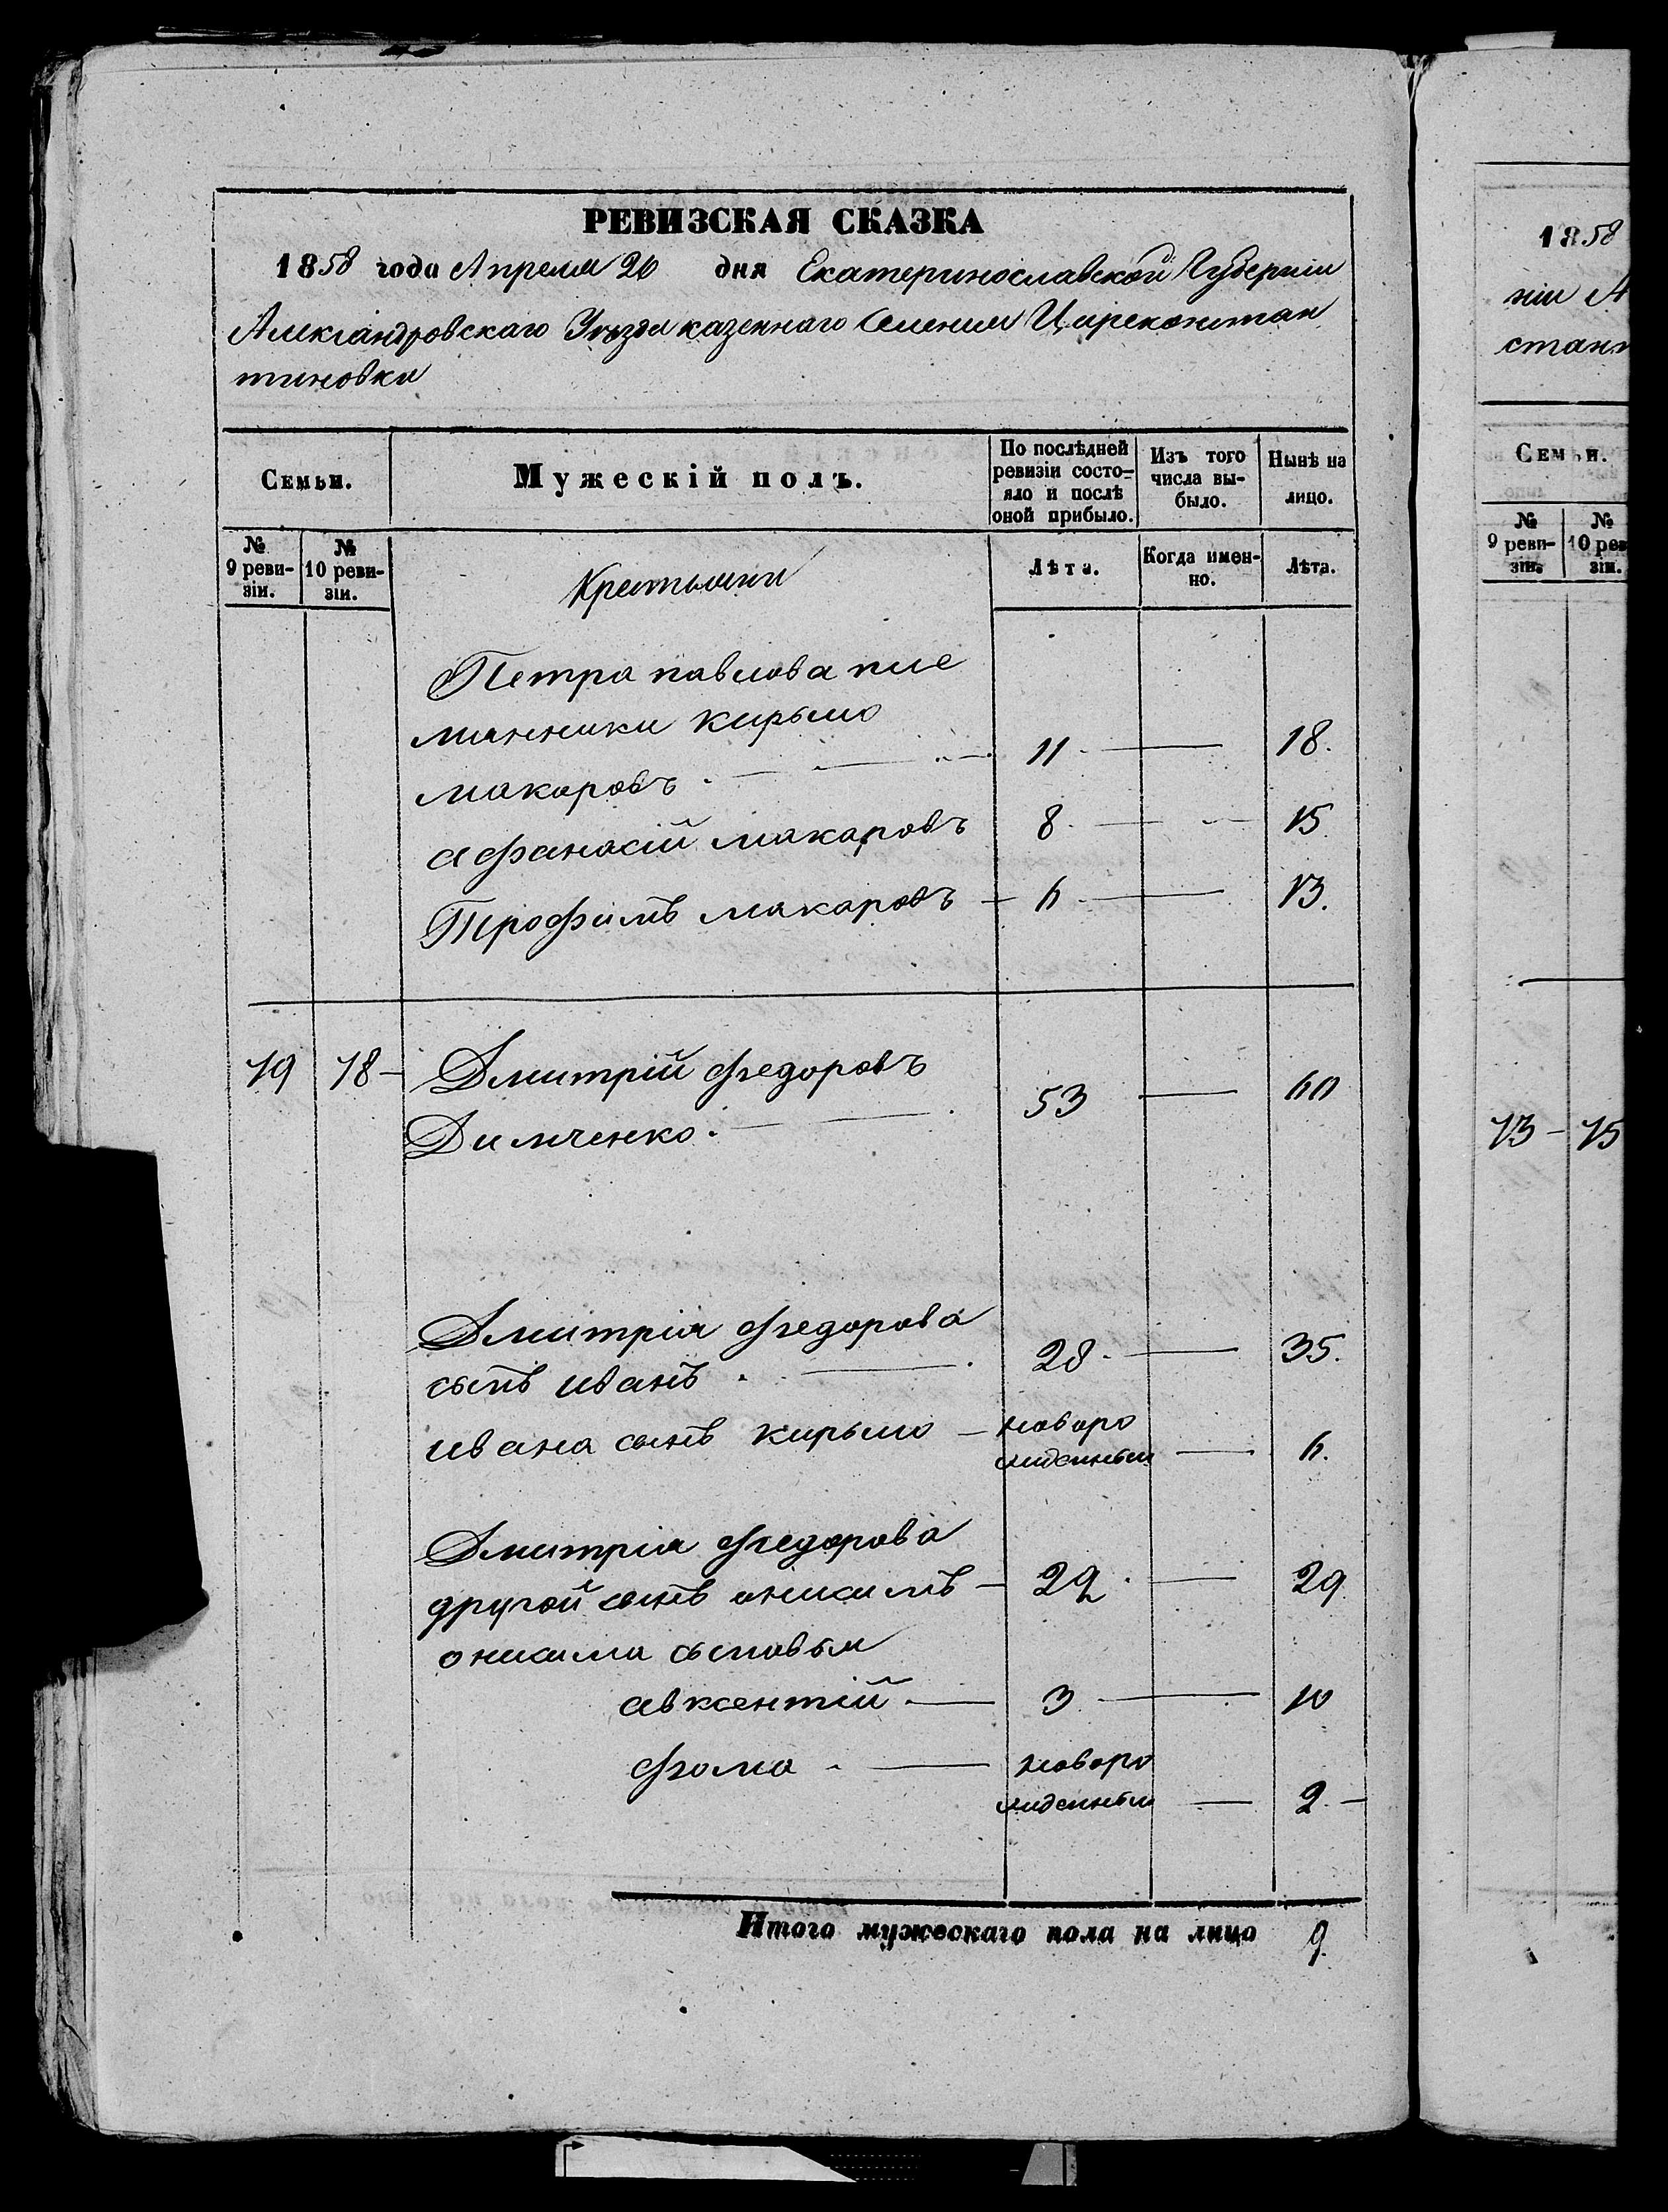 РЕВИЗСКАЯ СКАЗКА
1858 года Апреля 26 дня Екатеринославской Губернiи
Александровскаго Уѣзда казеннаго Селенiя Цареконстан
тиновки
Семьи.
Мужескiй полъ.
По послѣдней ревизiи состо-яло и послѣ оной прибыло.
Изъ того числа вы-было.
Нынѣ на лицо.
№ 9 реви-зiи.
№ 10 реви-зiи.
Крестьяни
Лѣта.
Когда имен-но.
Лѣта.
Петра павлова пле
мянники кирыло
макаровъ 11 18.
афанасiй макаровъ 8 15
Трофимъ макаровъ 6 13.
19 18 Дмитрiй федоровъ
Димченко. 53 60
Дмитрiя федорова
сынъ иванъ 28 35.
ивана сынъ кирыло новоро
жденный 6.
Дмитрiя федорова
другой сынъ онисимъ 22 29
онисима сыновья
авксентiй 3 10
фома новоро
жденный 2.
Итого мужескаго пола на лицо 9.
1858
нiи А
стан
Семьи.
№ 9 реви-зiи.
№ 10 рев зiи.
13 15